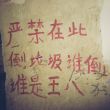 严禁在此
倒垃圾谁倒
谁是王八